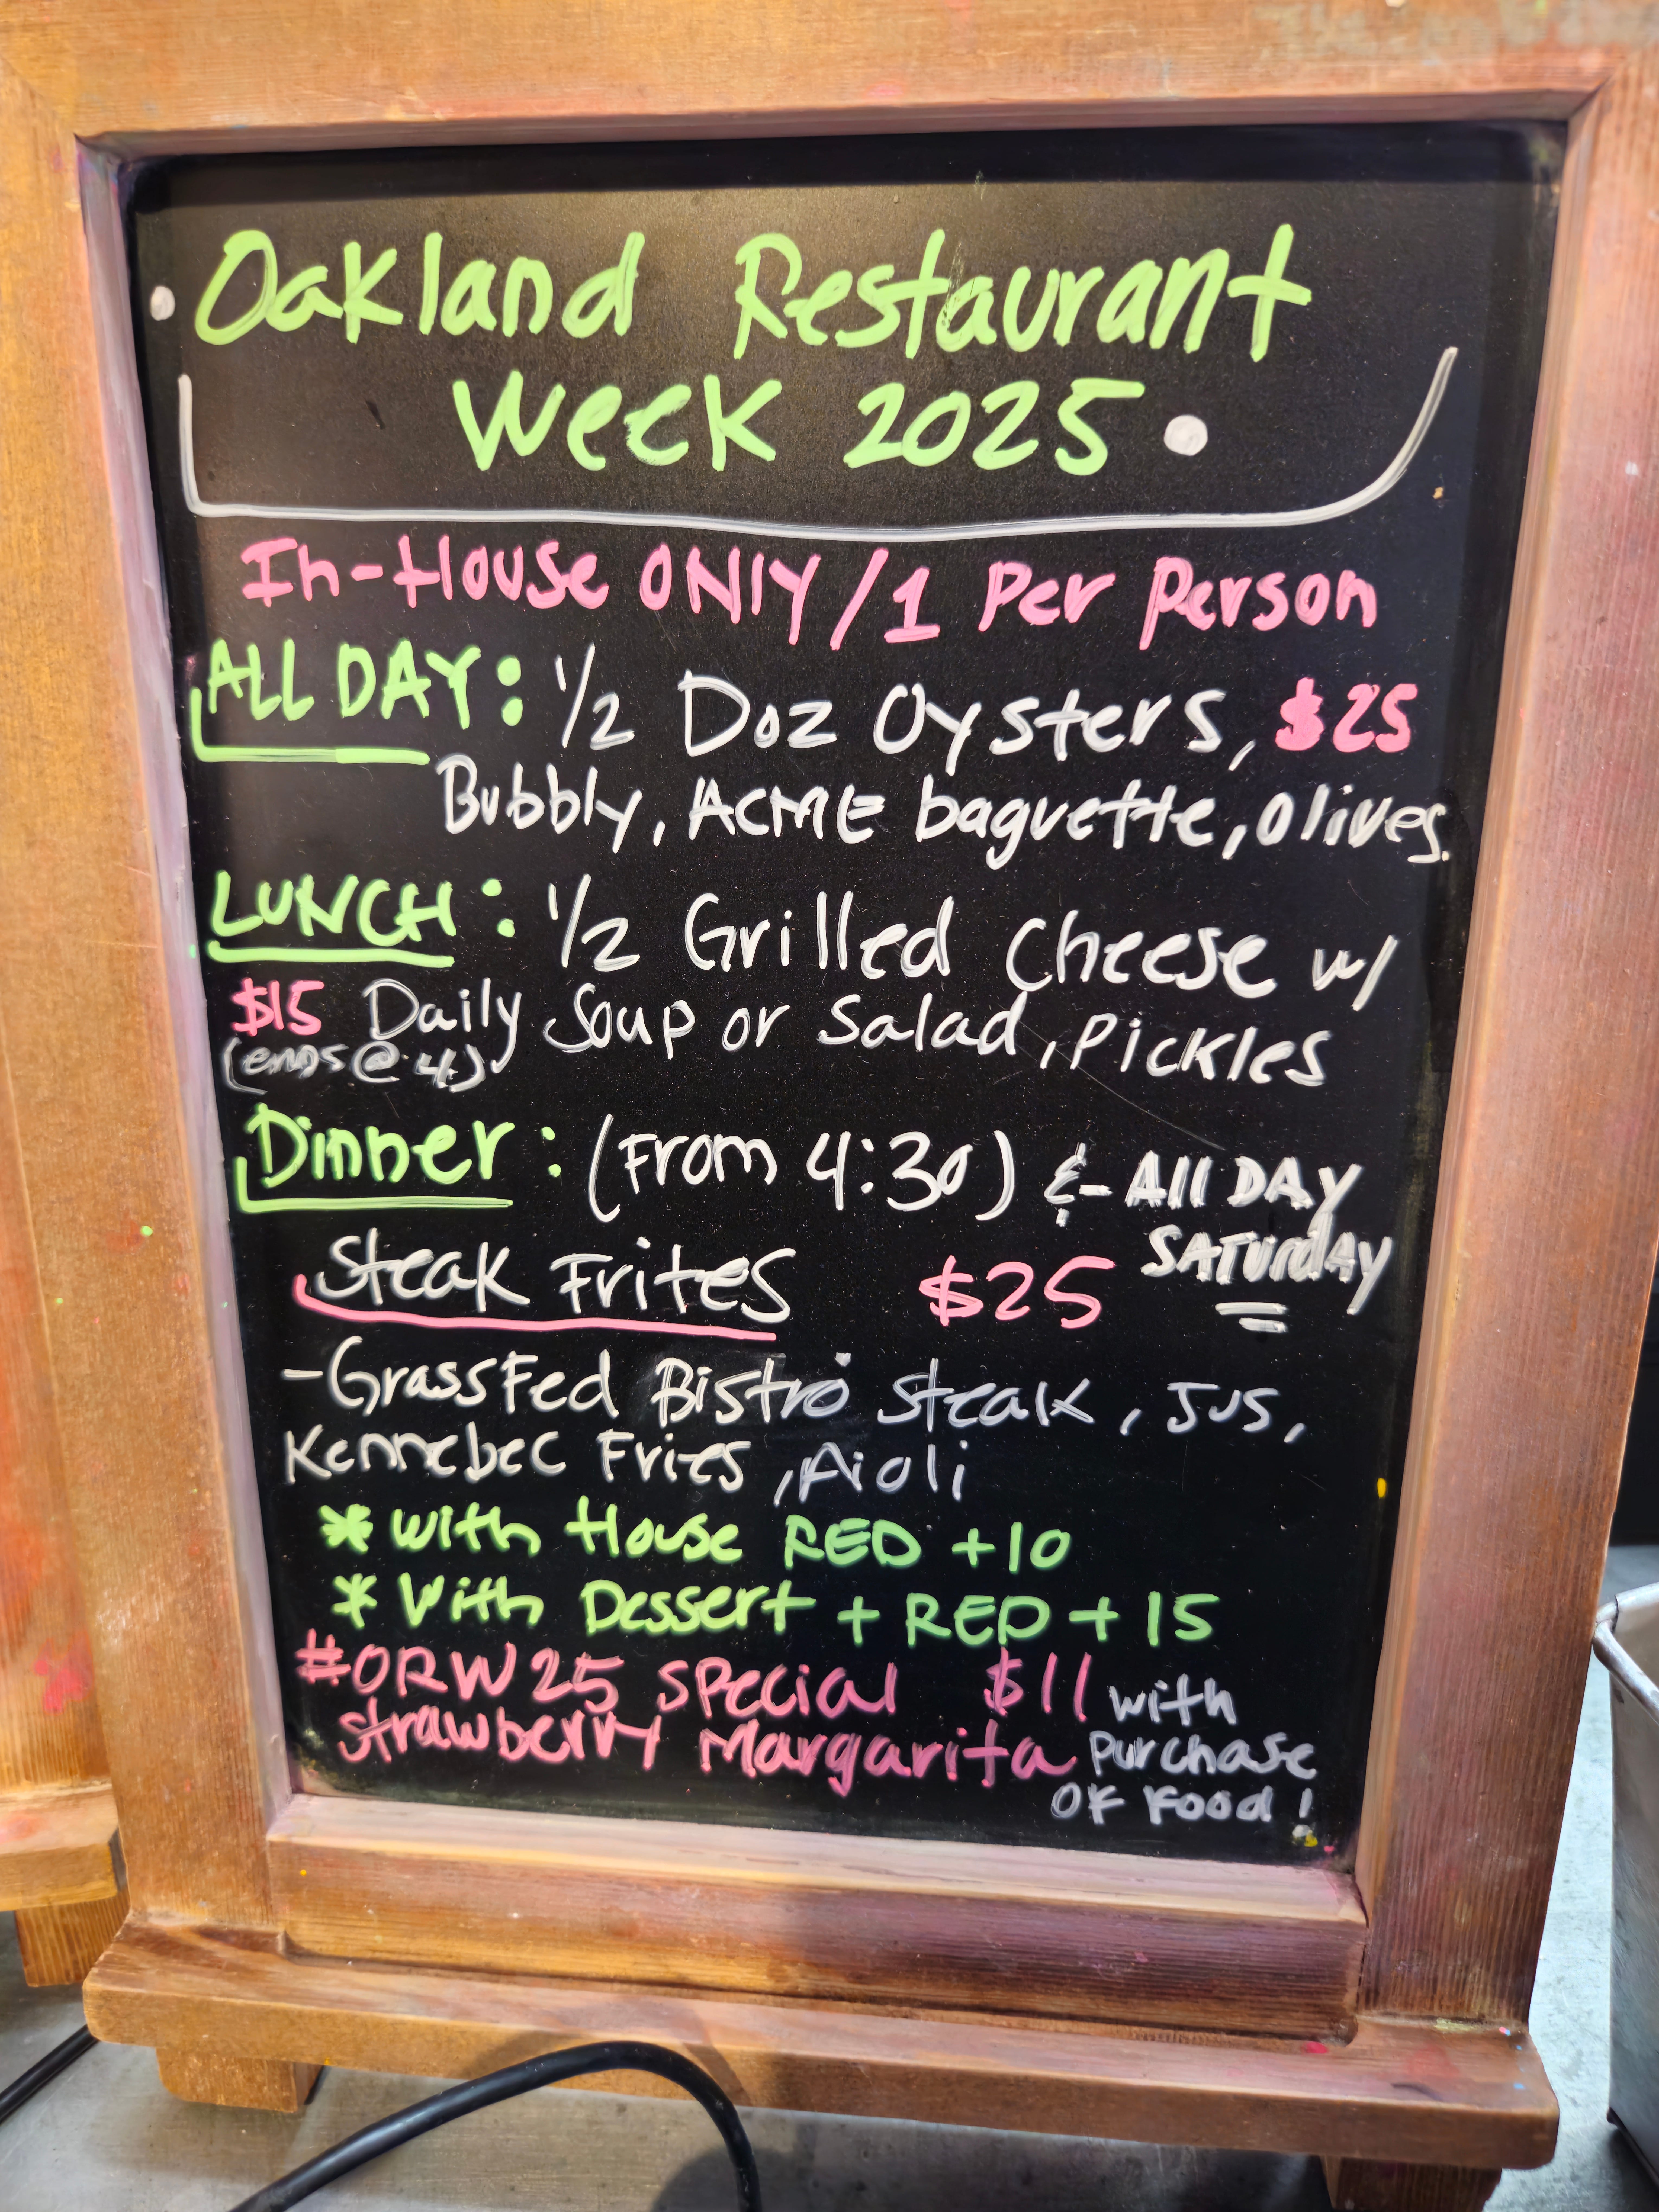 Oakland Restaurant
Week 2025
In-House ONLY / 1 Per Person
ALL DAY: 1/2 Doz Oysters, $25
Bubbly, ACME baguette, olives.
LUNCH: 1/2 Grilled Cheese w/
$15 Daily Soup or Salad, Pickles
(ends @ 4)
Dinner: (From 4:30) & All DAY
SATURDAY
Steak Frites $25
- Grassfed Bistro Steak, Jus,
Kennebec Fries, Aioli
* With House RED +10
* With Dessert + RED + 15
#ORW25 Special $11 with
Strawberry Margarita purchase
OF Food!